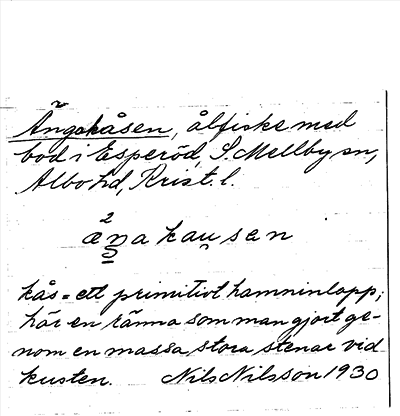 Ängakåsen, ålfiske med
bod i Esperöd, S. Mellby sn,
Albo hd, Krist. l.
2
æŋa kau̯sen
kås = ett primitivt hamninlopp;
här en ränna som man gjort ge-
nom en massa stora stenar vid
kusten. Nils Nilsson 1930